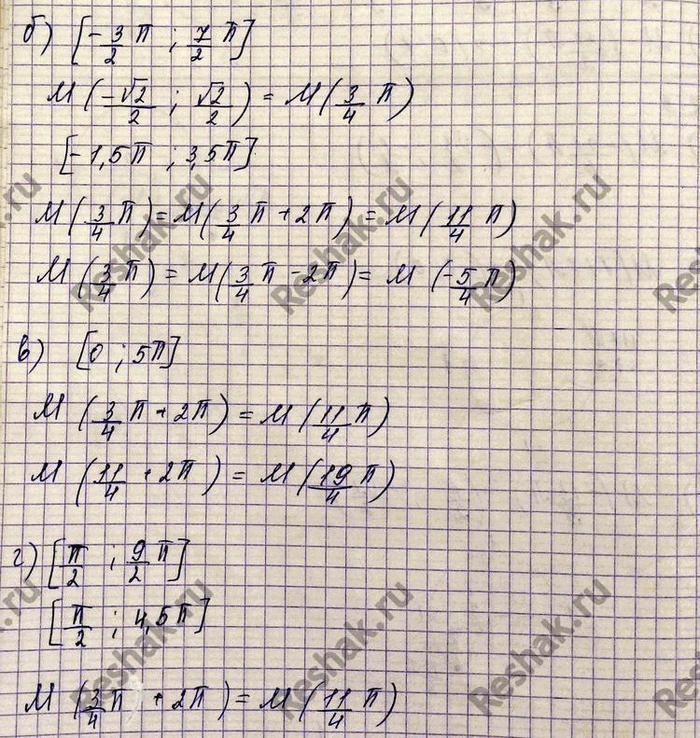 б) [-3/2 π ; 7/2 π]
M (-√2/2 ; √2/2) = M (3/4 π)
[-1,5π ; 3,5π]
M (3/4 π) = M (3/4 π + 2π) = M (11/4 π)
M (3/4 π) = M (3/4 π - 2π) = M (-5/4 π)
в) [0 ; 5π]
M (3/4 π + 2π) = M (11/4 π)
M (11/4 + 2π) = M (19/4 π)
г) [π/2 ; 9/2 π]
[π/2 ; 4,5π]
M (3/4 π + 2π) = M (11/4 π)
Reshak.ru